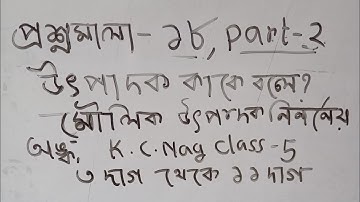 প্রশ্নমালা - ১৮, part-২
উৎপাদক কাকে বলে?
মৌলিক উৎপাদক নির্ণয়
অঙ্ক, K.C.Nag Class-5
৩ দাগ থেকে ১১ দাগ